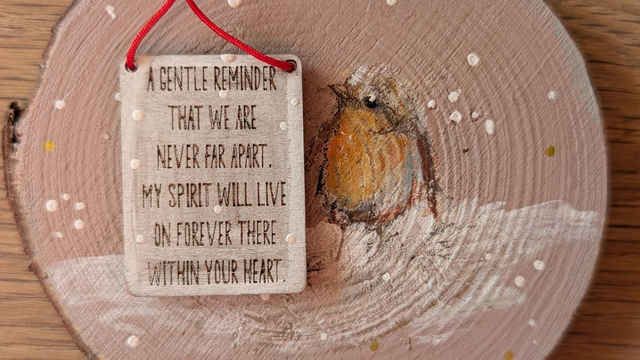 A GENTLE REMINDER
THAT WE ARE
NEVER FAR APART.
MY SPIRIT WILL LIVE
ON FOREVER THERE
WITHIN YOUR HEART.